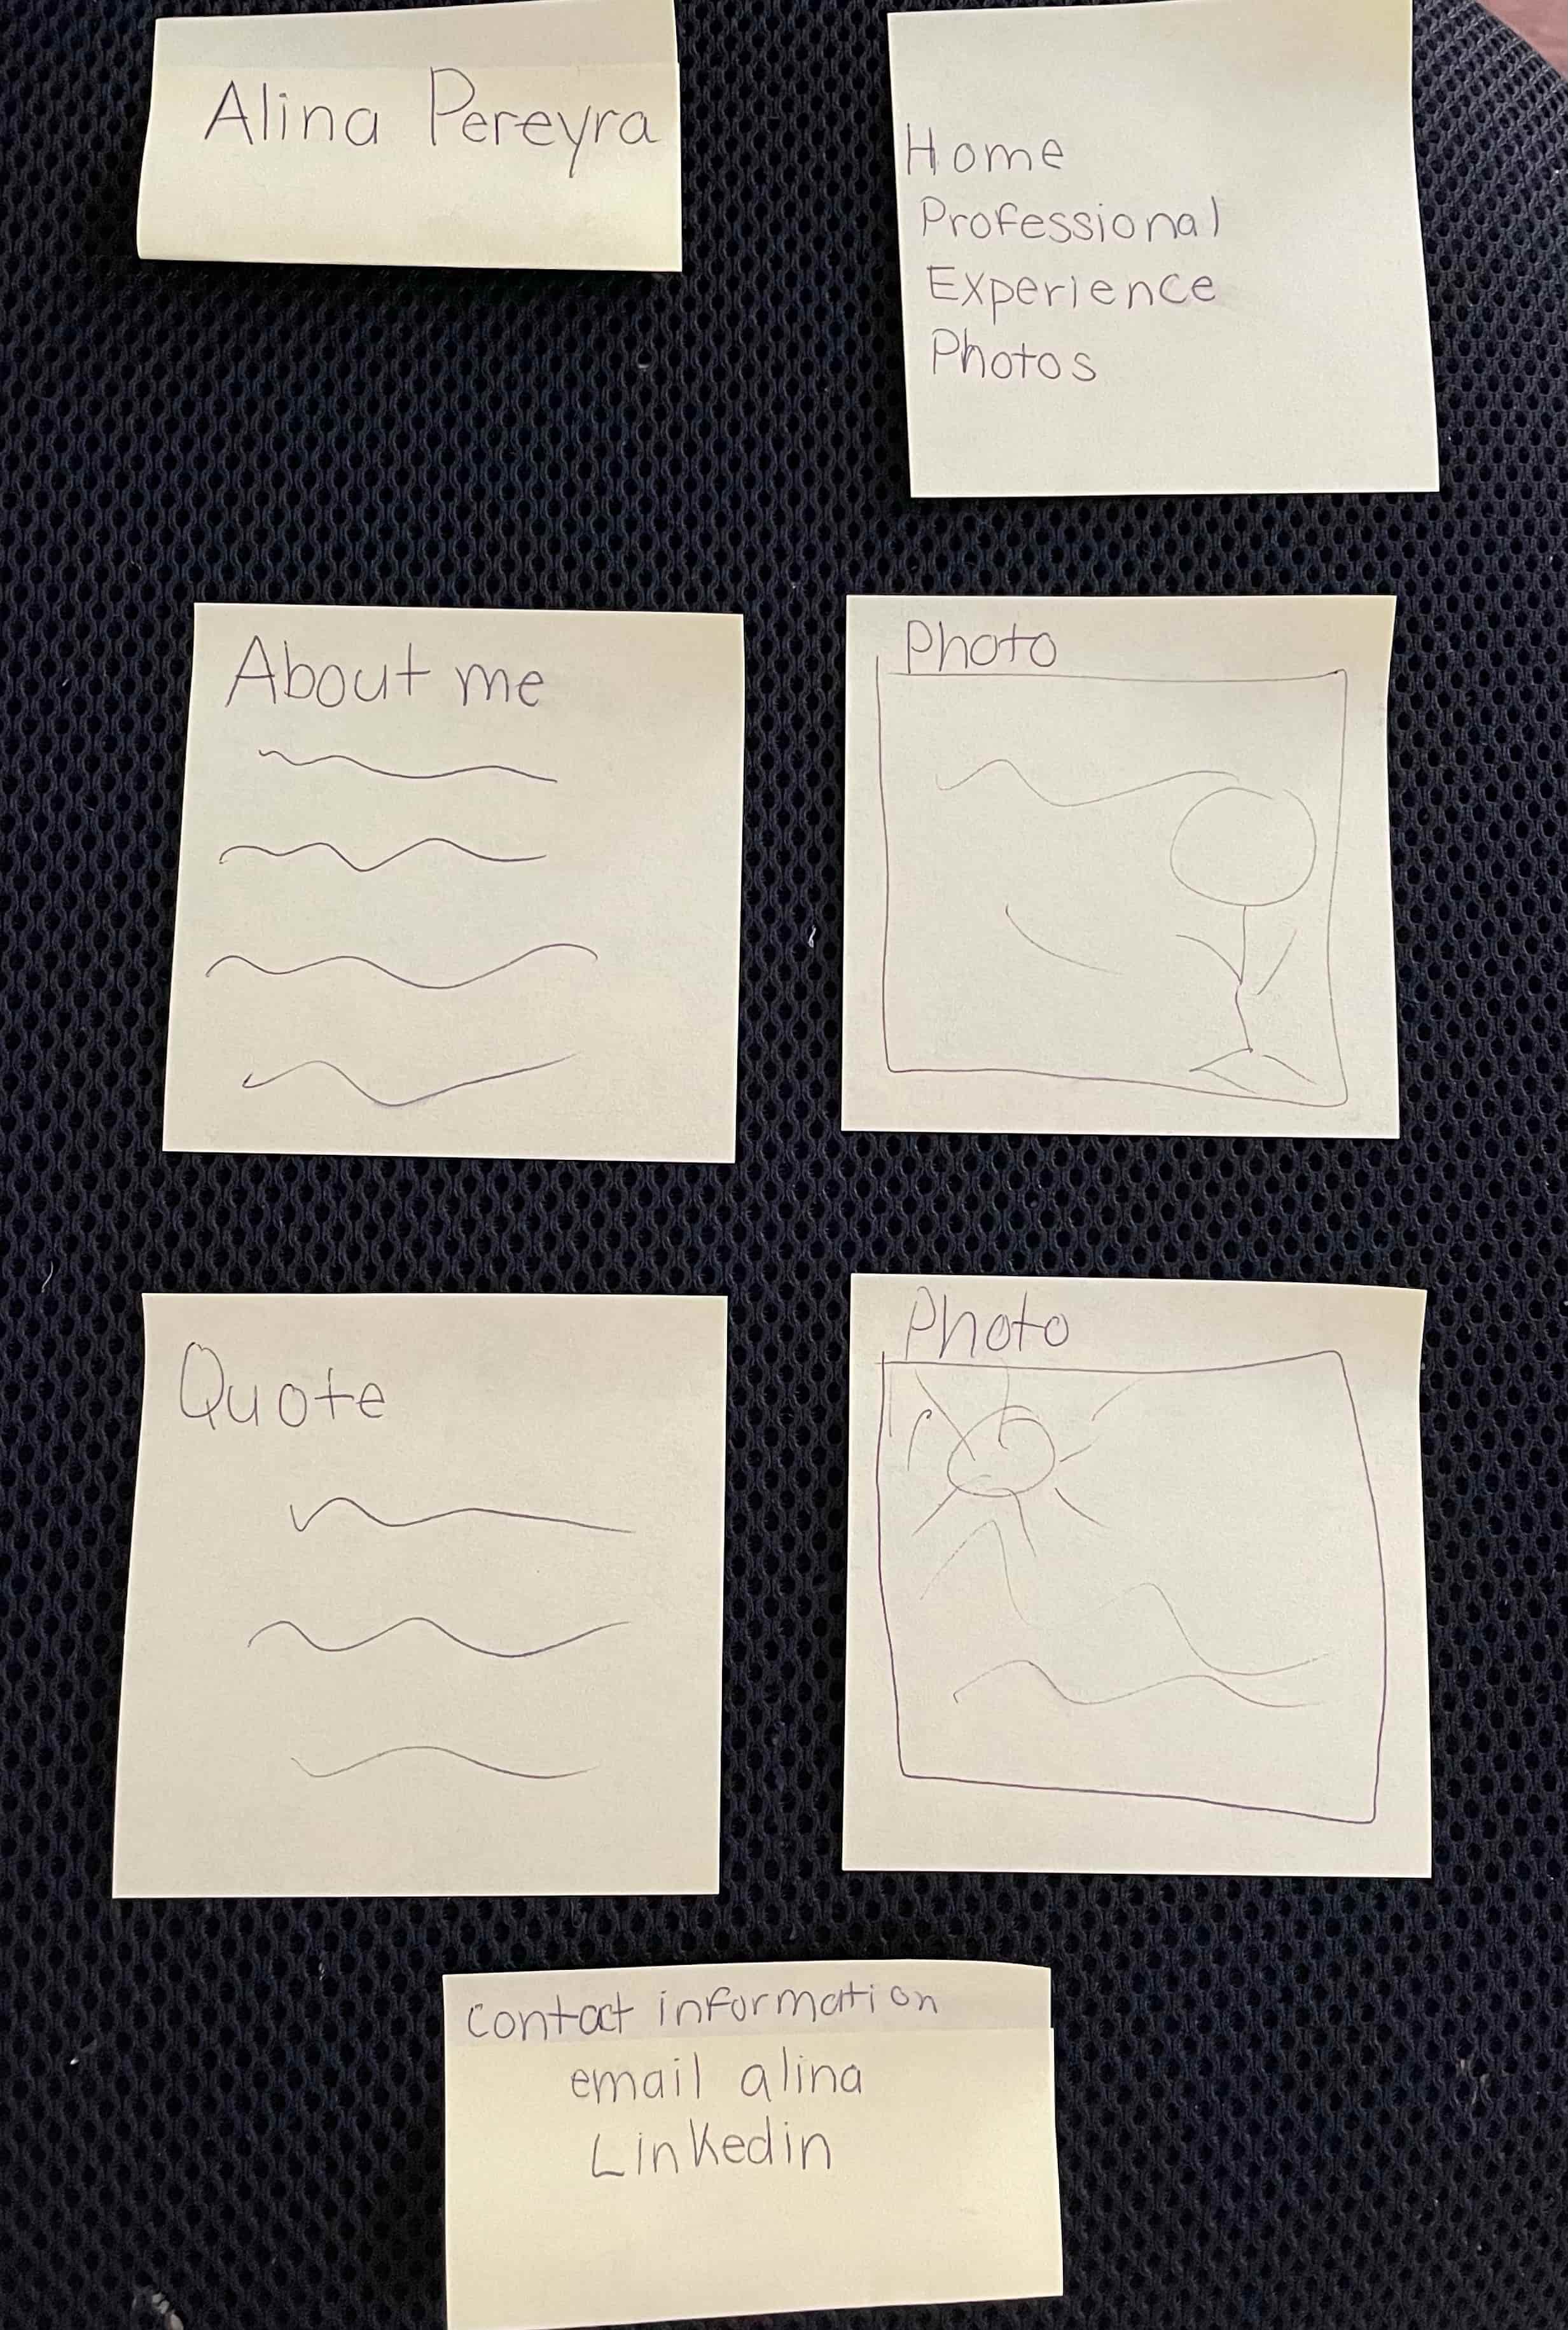 Alina Pereyra
Home
Professional
Experience
Photos
About me
Photo
Quote
Photo
contact information
email alina
Linkedin